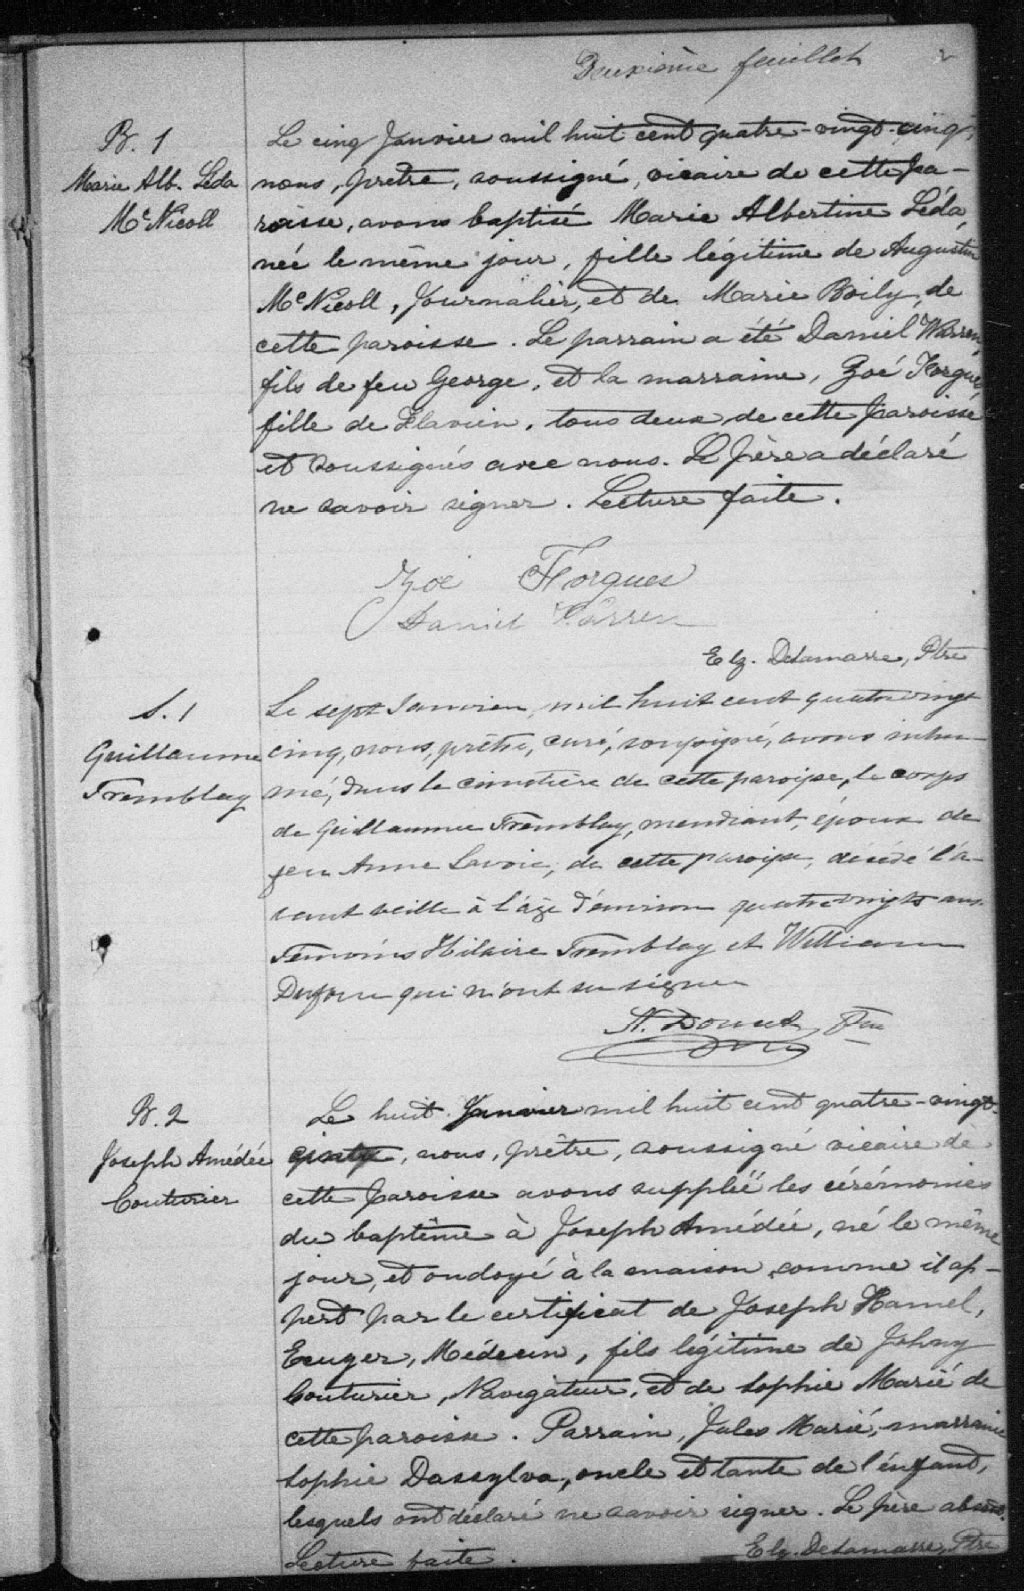 Deuxième feuillet 2
B. 1
Marie Alb. Léda
McNicoll
Le cinq Janvier mil huit cent quatre-vingt-cinq,
nous, prêtre, soussigné, vicaire de cette pa-
roisse, avons baptisé Marie Albertine Léda,
née le même jour, fille légitime de Augustin
McNicoll, Journalier, et de Marie Boily de
cette paroisse. Le parrain a été Daniel Warren,
fils de feu George, et la marraine, Zoé Forgues,
fille de Flavien, tous deux de cette paroisse
et soussignés avec nous. Le père a déclaré
ne savoir signer. Lecture faite.
Zoé Forgues
Daniel Warren
Elz. DeLamarre, Ptre
S. 1
Guillaume
Tremblay
Le sept Janvier, mil huit cent quatre vingt
cinq, nous, prêtre, curé, soussigné, avons inhu-
mé, dans le cimetière de cette paroisse, le corps
de Guillaume Tremblay, mendiant, époux de
feu Anne Lavoie, de cette paroisse, décédé l'a-
vant veille à l'âge d'environ quatre vingts ans.
Témoins Hilaire Tremblay et William
Dufour qui n'ont su signer
A. Doucet, Ptre
B. 2
Joseph Amédée
Couturier
Le huit Janvier mil huit cent quatre-vingt-
cinq, nous, prêtre, soussigné vicaire de
cette paroisse avons suppléé les cérémonies
du baptême à Joseph Amédée, né le même
jour, et ondoyé à la maison, comme il ap-
pert par le certificat de Joseph Hamel,
Ecuyer, Médecin, fils légitime de Johny
Couturier, Navigateur, et de Sophie Marié de
cette paroisse. Parrain, Jules Marié, marraine
Sophie Dassylva, oncle et tante de l'enfant,
lesquels ont déclaré ne savoir signer. Le père absent.
Lecture faite. Elz. DeLamarre, Ptre